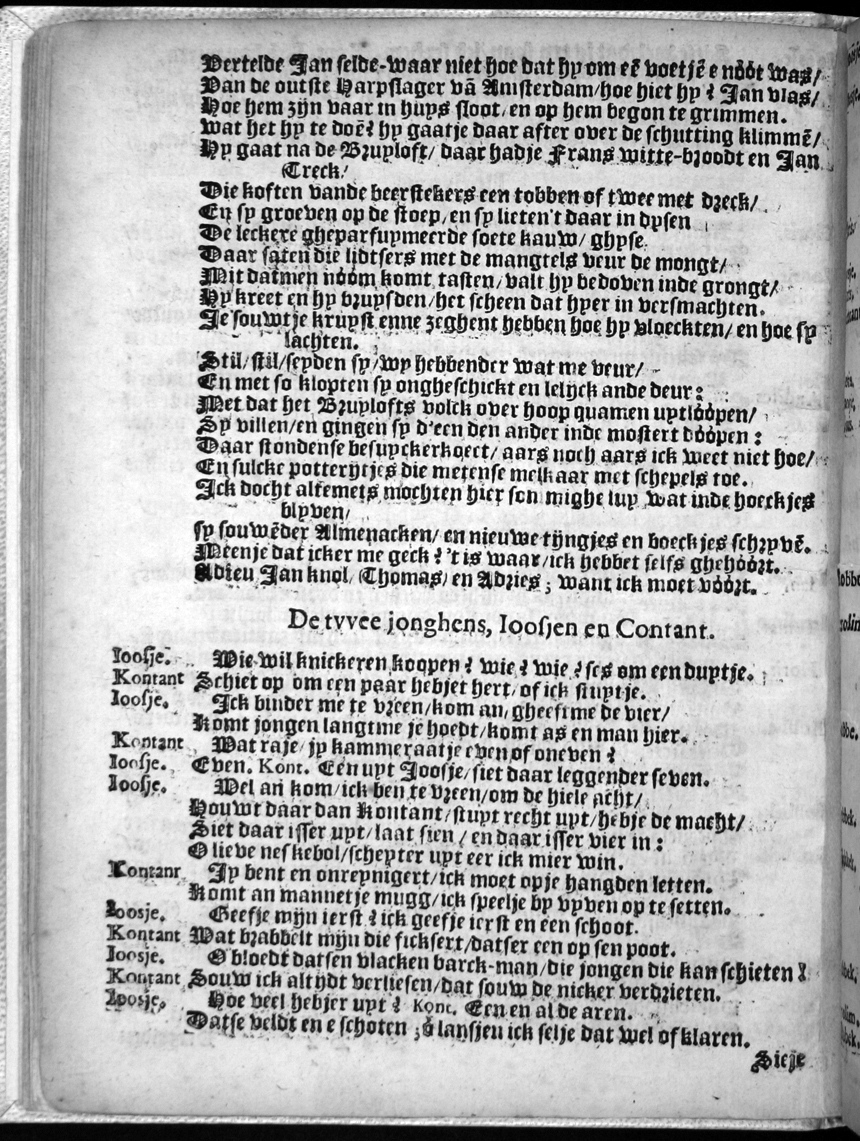 Vertelde Jan selde-waar niet hoe dat hy om eẽ voetjẽ e nóót was/
Van de outste Harpslager vã Amsterdam/hoe hiet hy? Jan vlas/
Hoe hem zijn vaar in huys sloot/en op hem begon te grimmen.
Wat het hy te doẽ? hy gaatje daar after over de schutting klimmẽ/
Hy gaat na de Bruyloft/ daar hadje Frans witte-broodt en Jan
Treck/
Die koften vande beerstekers een tobben of twee met dreck/
En sy groeven op de stoep/en sy lieten't daar in dysen
De leckere gheparfuymeerde soete kauw/ghyse.
Daar saten die lidtsers met de mangtels veur de mongt/
Mit datmen nóóm komt tasten/valt hy bedoven inde grongt/
Hy kreet en hy bruysden/het scheen dat hyer in versmachten.
Je souwtje kruyst enne zeghent hebben hoe hy vloeckten/en hoe sy
lachten.
Stil/stil/seyden sy/wy hebbender wat me veur/
En met so klopten sy ongheschickt en lelijck ande deur:
Met dat het Bruylofts volck over hoop quamen uytlóópen/
Sy villen/en gingen sy d'een den ander inde mostert dóópen:
Daar stondense besuyckerkoect/aars noch aars ick weet niet hoe/
En sulcke potterytjes die metense melkaar met schepels toe.
Ick docht altemets mochten hier son mighe luy wat inde hoeckjes
blyven/
sy souwẽder Almenacken/en nieuwe tijngjes en boeckjes schryvẽ.
Meenje dat icker me geck? 't is waar/ick hebbet selfs ghehóórt.
Adieu Jan knol/Thomas/en Adries; want ick moet vóórt.
De tvvee jonghens, Ioosjen en Contant.
Ioosje. Wie wil knickeren koopen? wie? wie? ses om een duytje.
Kontant Schiet op om een paar hebjet hert/of ick stuytje.
Ioosje. Ick binder me te vreen/kom an/gheeft me de vier/
Komt jongen langtme je hoedt/komt as en man hier.
Kontant Wat raje/jy kammeraatje even of oneven?
Ioosje. Even. Kont. Een uyt Joosje/siet daar leggender seven.
Ioosje. Wel an kom/ick ben te vreen/om de hiele acht/
Houwt daar dan Kontant/stuyt recht uyt/hebje de macht/
Siet daar isser uyt/laat sien/en daar isser vier in:
O lieve neskebol/schepter uyt eer ick mier win.
Kontanr Jy bent en onreynigert/ick moet opje hangden letten.
Komt an mannetje mugg/ick speelje by vyven op te setten.
Ioosje. Geefje mijn ierst? ick geefje ierst en een schoot.
Kontant Wat brabbelt mijn die ficksert/datser een op sen poot.
Ioosje. O bloedt datsen vlacken barck-man/die jongen die kan schieten?
Kontant Souw ick altijdt verliesen/dat souw de nicker verdrieten.
Ioosje. Hoe veel hebjer uyt? Konc. Een en al de aren.
Datse veldt en e schoten; ó lansjeu ick selje dat wel of klaren.
Sieje